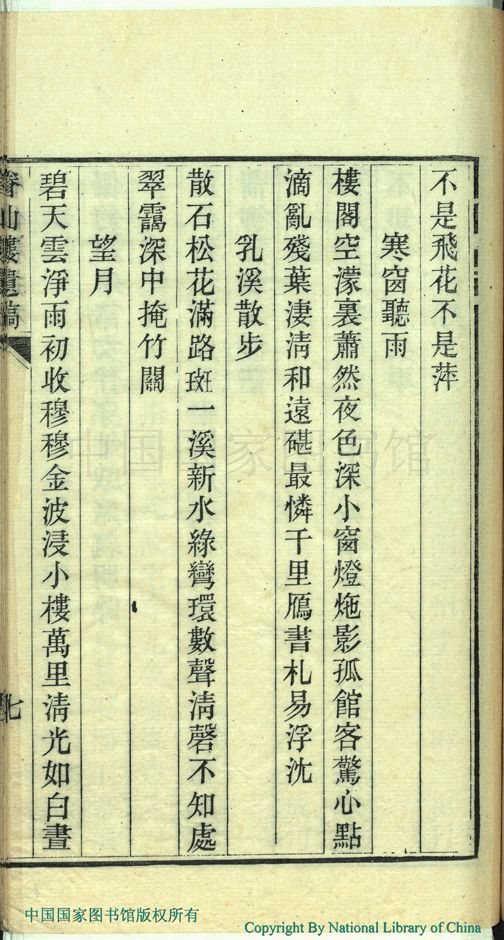 不是飛花不是萍
寒窗聽雨
樓閣空濛裏蕭然夜色深小窗燈灺影孤館客驚心點
滴亂殘葉淒淸和遠碪最憐千里鴈書札易浮沈
乳溪散步
散石松花滿路斑一溪新水綠彎環數聲淸磬不知處
翠靄深中掩竹關
望月
碧天雲淨雨初收穆穆金波浸小樓萬里淸光如白晝
山樓遺稿
七
中国国家图书馆
中国国家图书馆版权所有
Copyright By National Library of China